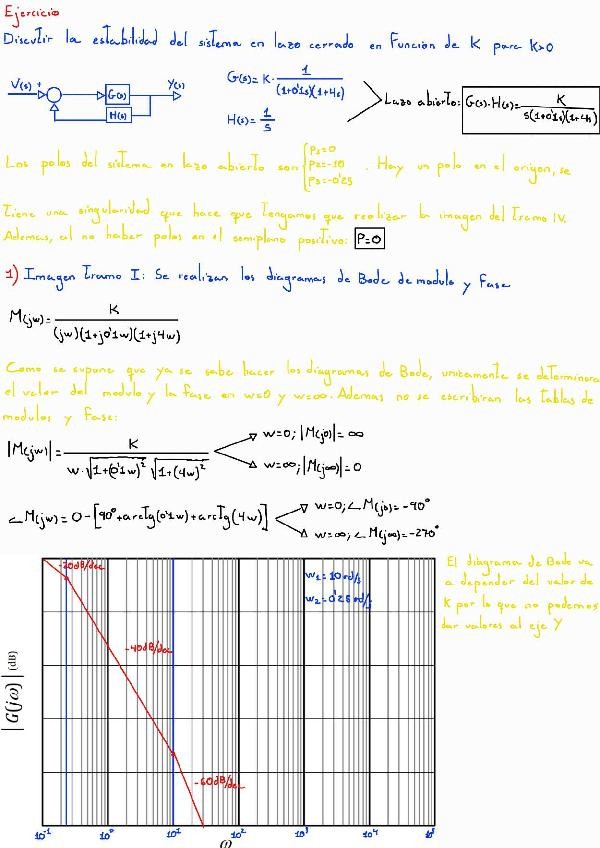 Ejercicio
Discutir la estabilidad del sistema en lazo cerrado en Funcion de K para K>0
V(s) + G(s) Y(s)
H(s)
G(s)= K· 1/((1+0'1s)(1+4s))
H(s)= 1/s
Lazo abierto: G(s)·H(s)= K/(s(1+0'1s)(1+4s))
Los polos del sistema en lazo abierto son { P1=0 P2=-10 P3=-0'25 . Hay un polo en el origen, se
tiene una singularidad que hace que tengamos que realizar la imagen del tramo IV.
Ademas, al no haber polos en el semiplano positivo: P=0
1) Imagen tramo I: Se realizan los diagramas de Bode de modulo y Fase
M(jw)= K/((jw)(1+j0'1w)(1+j4w))
Como se supone que ya se sabe hacer los diagramas de Bode, unicamente se determinara
el valor del modulo y la fase en w=0 y w=∞. Ademas no se escribiran las tablas de
modulos y Fase:
|M(jw)|= K/(w·√(1+(0'1w)²) √(1+(4w)²))
w=0; |M(j0)|= ∞
w=∞; |M(j∞)|= 0
∠M(jw)= 0-[90°+arctg(0'1w)+arctg(4w)]
w=0; ∠M(j0)=-90°
w=∞; ∠M(j∞)=-270°
-20dB/dec
-40dB/dec
-60dB/dec
w1=10 rd/s
w2=0'25 rd/s
El diagrama de Bode va
a depender del valor de
K por lo que no podemos
dar valores al eje Y
|G(jω)| (dB)
10⁻¹ 10⁰ 10¹ 10² 10³ 10⁴ 10⁵
ω